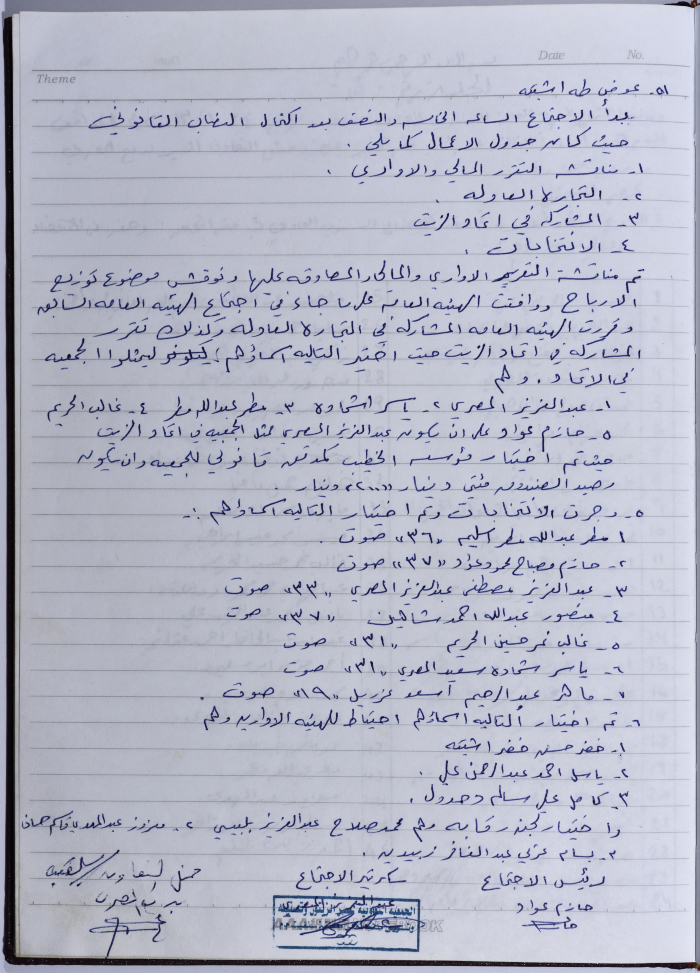 Date No.
Theme
٥١- عوض طه اشتيه
بدأ الاجتماع الساعه الخامسه والنصف بعد اكتمال النصاب القانوني
حيث كان جدول الاعمال كما يلي .
١- مناقشة التقرر المالي والاداري .
٢- التجارة العادله .
٣- المشاركه في اتحاد الزيت
٤- الانتخابات .
تم مناقشة التقرير الاداري والمالي والمصادقه عليها ونوقش موضوع توزيع
الارباح ووافقت الهيئه العامه على ما جاء في اجتماع الهيئه العامه السابق
وقررت الهيئه العامه المشاركه في التجارة العادله وكذلك تقرر
المشاركه في اتحاد الزيت حيث اختير التاليه اسماؤهم ليمثلوا الجمعيه
في الاتحاد . وهم
١- عبد العزيز المصري ٢- ياسر شحادة ٣- مطر عبدالله مطر ٤- غالب الحريم
٥- حازم عواد على ان يكون عبد العزيز المصري ممثل الجمعيه في اتحاد الزيت
حيث تم اختيار مؤسسه الخطيب كمدقق قانوني للجمعيه وان يكون
رصيد الصندوق مئتي دينار "٢٠٠" دينار .
٥- وجرت الانتخابات وتم اختيار التاليه اسماؤهم :-
١ مطر عبدالله مطر اسليم "٣٦" صوت .
٢- حازم مصباح محمود عواد "٣٧" صوت
٣- عبد العزيز مصطفى عبد العزيز المصري "٣٣" صوت
٤- منصور عبدالله احمد شاهين "٣٧" صوت
٥- غالب نمر حسين الحريم "٣١" صوت
٦- ياسر شحاده سعيد المصري "٣١" صوت
٧- ماهر عبد الرحيم اسعد "١٩" صوت .
٦- تم اختيار التاليه اسماؤهم احتياط للهيئه الاداريه وهم
١- خضر حسن خضر اشتيه
٢- باسل احمد عبد الرحمن علي .
٣- كامل علي سالم وحدول .
واختيار لجنة رقابه وهم محمد صلاح عبد العزيز بلبيسي ٢- عبد المهدي قاسم حسان
٣- بسام عزمي عبد الغافر زبيدي .
رئيس الاجتماع سكرتير الاجتماع ممثل التعاون
حازم عواد